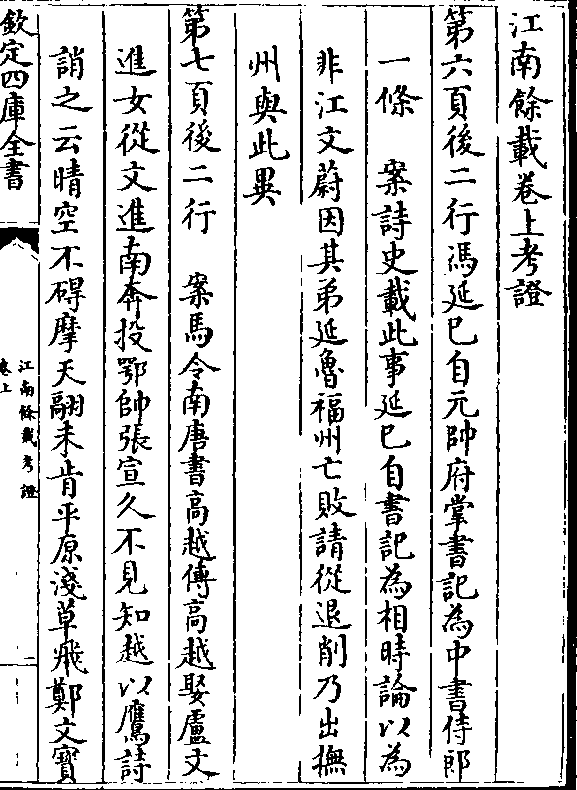 江南餘載卷上考證
第六頁後二行馮延巳自元帥府掌書記為中書侍郎
一條　案詩史載此事延巳自書記為相時論以為
非江文蔚因其弟延魯福州亡敗請從退削乃出撫
州與此異
第七頁後二行　案馬令南唐書高越傳高越娶盧文
進女從文進南奔投鄂帥張宣久不見知越以鷹詩
誚之云晴空不碍摩天翮未肯平原淺草飛鄭文寳
欽定四庫全書
江南餘載考證
卷上
二